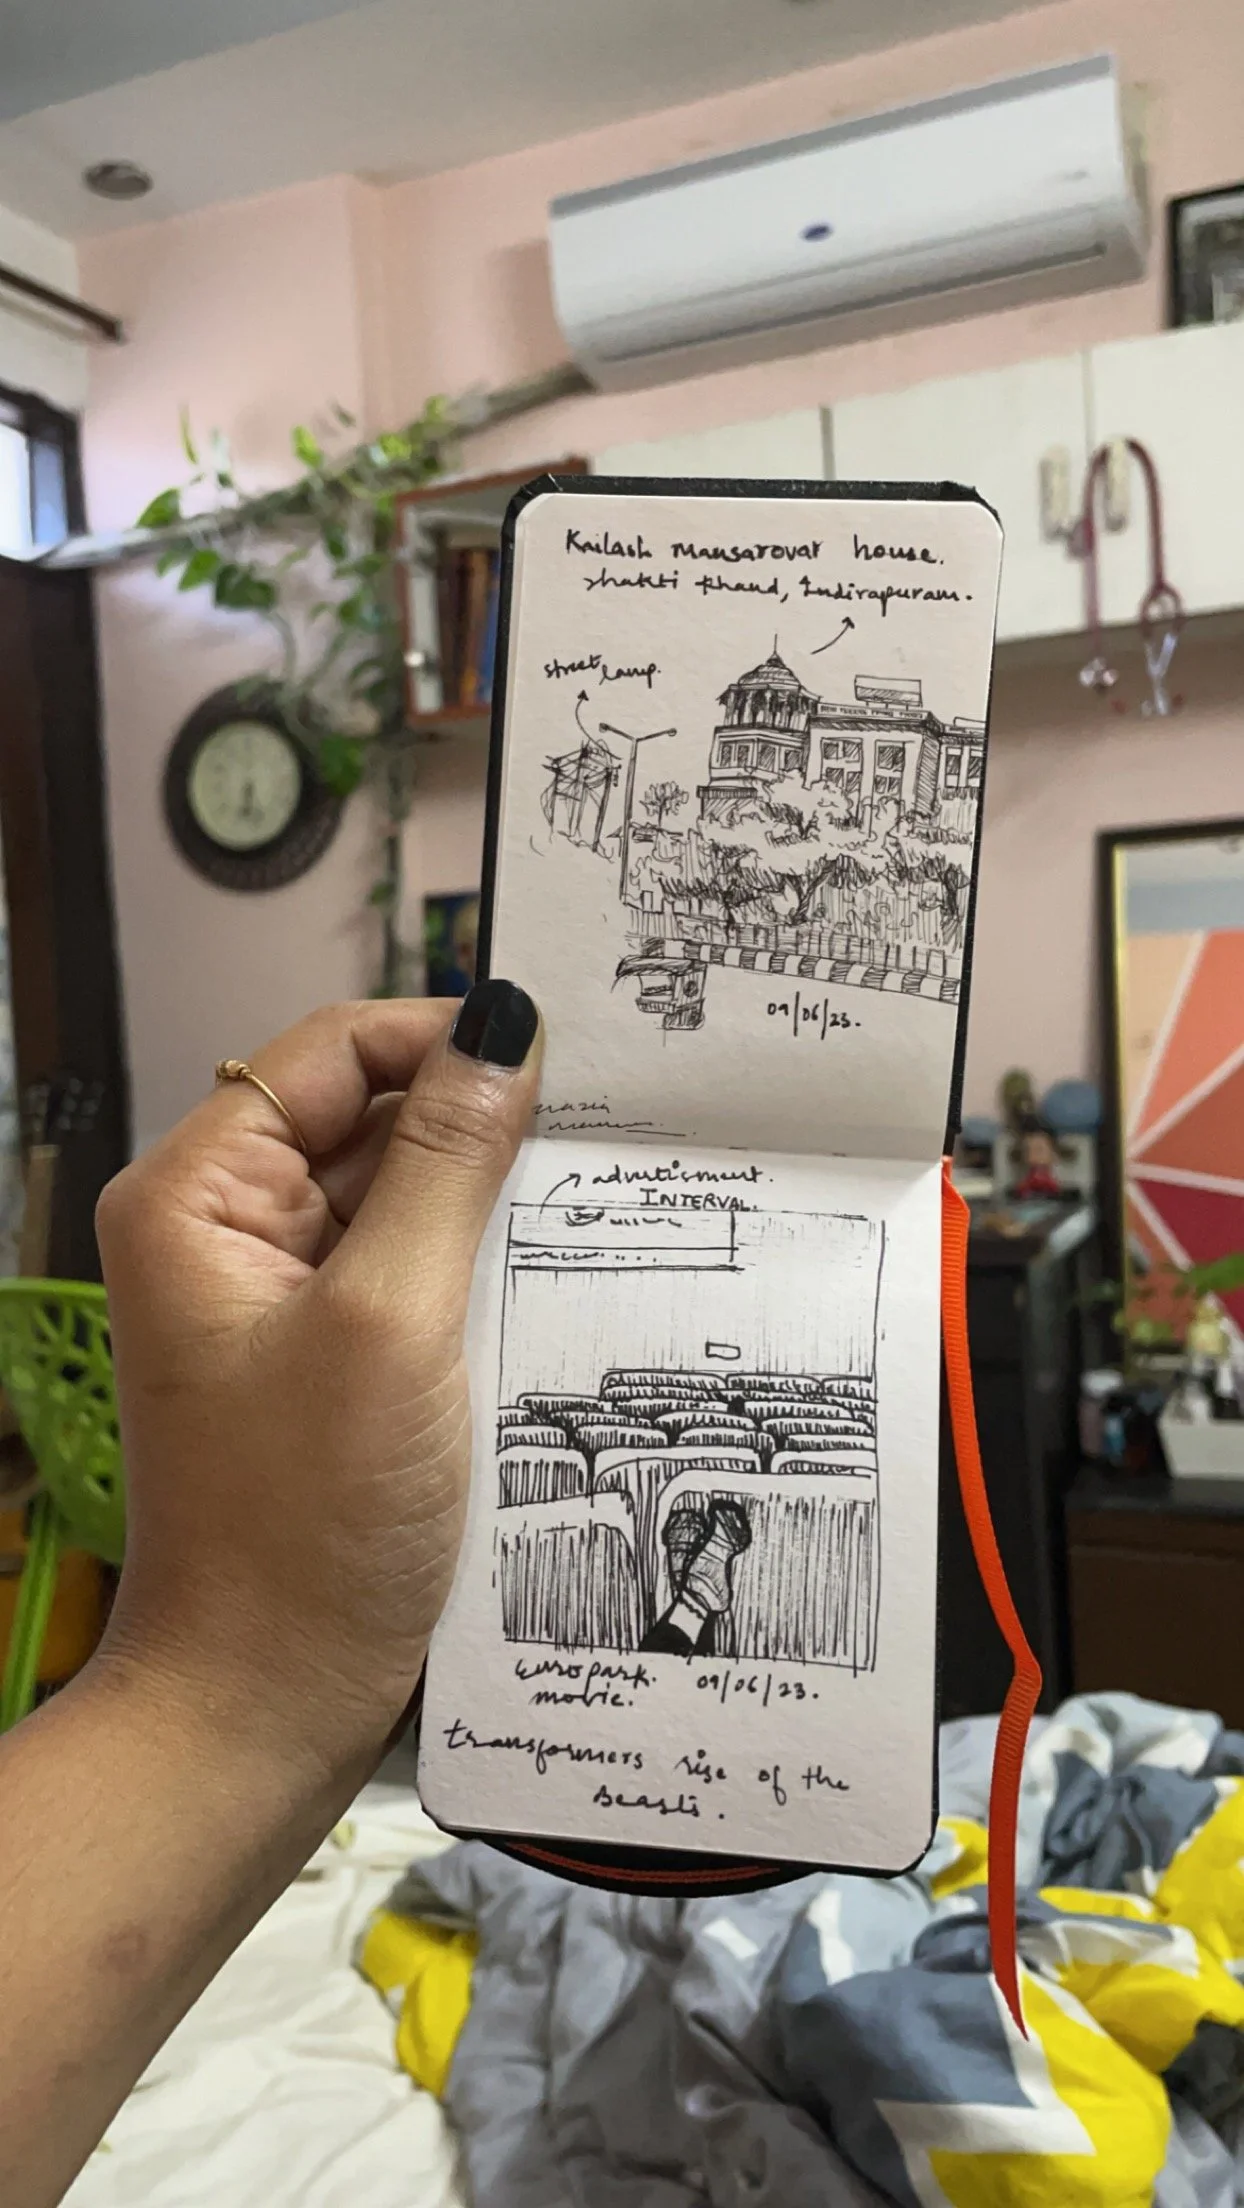 Kailash mansarovar house.
shakti khand, Indirapuram.
street lamp.
09/06/23.
nazia
advertisment.
INTERVAL.
Europark.
movie.
09/06/23.
transformers rise of the
Beasts.